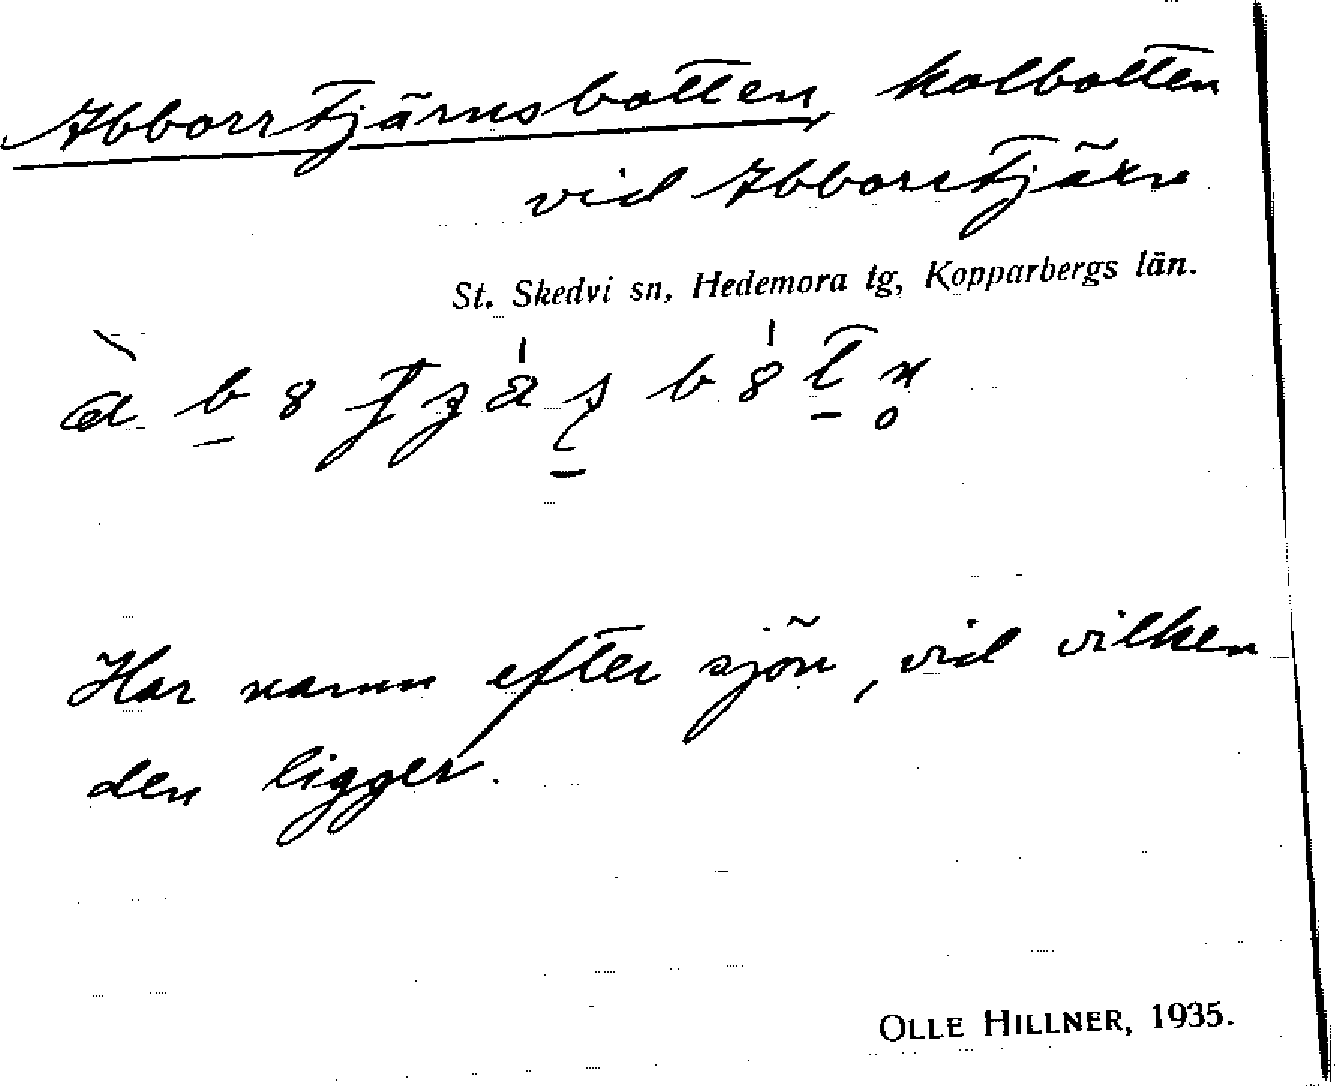 Abborrtjärnsbotten, kolbotten
vid Abborrtjärn
St. Skedvi sn, Hedemora tg, Kopparbergs län.
Har namn efter sjön, vid vilken
den ligger.
OLLE HILLNER, 1935.